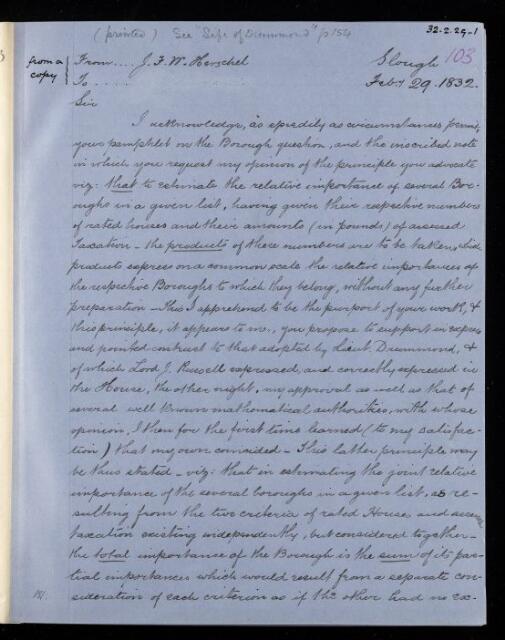 (printed) See "Life of Drummond" p 154
32-2.29-1
103
from a copy
From .... J. F. W. Herschel
To .....
Slough
Feby 29. 1832.
Sir
I acknowledge, as speedily as circumstances permit,
your pamphlet on the Borough question, and the inscribed note
in which you request my opinion of the principle you advocate
viz: that to estimate the relative importance of several Bor-
oughs in a given list, having given their respective numbers
of rated houses and their amounts (in pounds) of assessed
Taxation - the products of these numbers are to be taken,
products express on a common scale the relative importances of
the respective Boroughs to which they belong, without any further
preparation - this I apprehend to be the purport of your work, &
this principle, it appears to me, you propose to support in express
and pointed contrast to that adopted by Lieut. Drummond, &
of which Lord J. Russell expressed, and correctly expressed in
the House, the other night, my approval as well as that of
several well known mathematical authorities, with whose
opinion, I then for the first time learned (to my satisfac-
tion) that my own coincided - This latter principle may
be thus stated - viz: that in estimating the joint relative
importance of the several boroughs in a given list, as re-
sulting from the two criteria of rated Houses and assessed
taxation existing independently, but considered together -
the total importance of the Borough is the sum of its par-
tial importances which would result from a separate con-
sideration of each criterion as if the other had no ex-